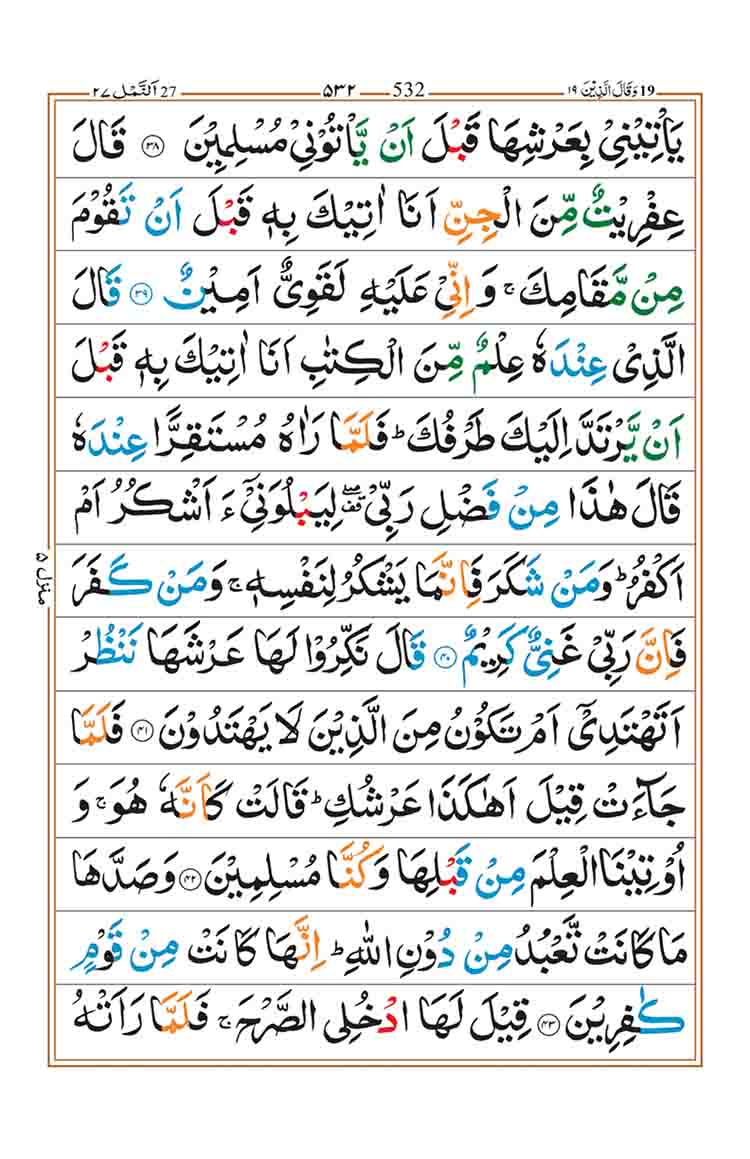 19 وَقَالَ الَّذِيْنَ ١٩ 532 ۵۳۲ 27 اَلنَّمْل ٢٧
يَاْتِيْنِيْ بِعَرْشِهَا قَبْلَ اَنْ يَّاْتُوْنِيْ مُسْلِمِيْنَ ﴿۳۸﴾ قَالَ
عِفْرِيْتٌ مِّنَ الْجِنِّ اَنَا اٰتِيْكَ بِهٖ قَبْلَ اَنْ تَقُوْمَ
مِنْ مَّقَامِكَ ۚ وَاِنِّيْ عَلَيْهِ لَقَوِيٌّ اَمِيْنٌ ﴿۳۹﴾ قَالَ
الَّذِيْ عِنْدَهٗ عِلْمٌ مِّنَ الْكِتٰبِ اَنَا اٰتِيْكَ بِهٖ قَبْلَ
اَنْ يَّرْتَدَّ اِلَيْكَ طَرْفُكَ ؕ فَلَمَّا رَاٰهُ مُسْتَقِرًّا عِنْدَهٗ
قَالَ هٰذَا مِنْ فَضْلِ رَبِّيْ ۖۗ لِيَبْلُوَنِيْٓ ءَاَشْكُرُ اَمْ
اَكْفُرُ ؕ وَمَنْ شَكَرَ فَاِنَّمَا يَشْكُرُ لِنَفْسِهٖ ۚ وَمَنْ كَفَرَ
فَاِنَّ رَبِّيْ غَنِيٌّ كَرِيْمٌ ﴿۴۰﴾ قَالَ نَكِّرُوْا لَهَا عَرْشَهَا نَنْظُرْ
اَتَهْتَدِيْٓ اَمْ تَكُوْنُ مِنَ الَّذِيْنَ لَا يَهْتَدُوْنَ ﴿۴۱﴾ فَلَمَّا
جَآءَتْ قِيْلَ اَهٰكَذَا عَرْشُكِ ؕ قَالَتْ كَاَنَّهٗ هُوَ ۚ وَ
اُوْتِيْنَا الْعِلْمَ مِنْ قَبْلِهَا وَكُنَّا مُسْلِمِيْنَ ﴿۴۲﴾ وَصَدَّهَا
مَا كَانَتْ تَّعْبُدُ مِنْ دُوْنِ اللّٰهِ ؕ اِنَّهَا كَانَتْ مِنْ قَوْمٍ
كٰفِرِيْنَ ﴿۴۳﴾ قِيْلَ لَهَا ادْخُلِي الصَّرْحَ ۚ فَلَمَّا رَاَتْهُ
منزل ۵